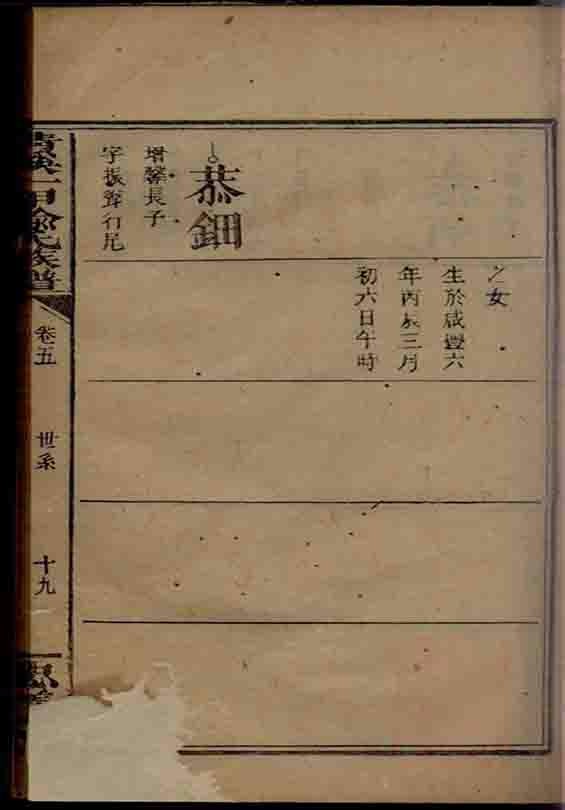 之女
生於咸豐六
年丙辰三月
初六日午時
恭鈿
增馨長子
字振聲行尾
氏族譜
卷五
世系
十九